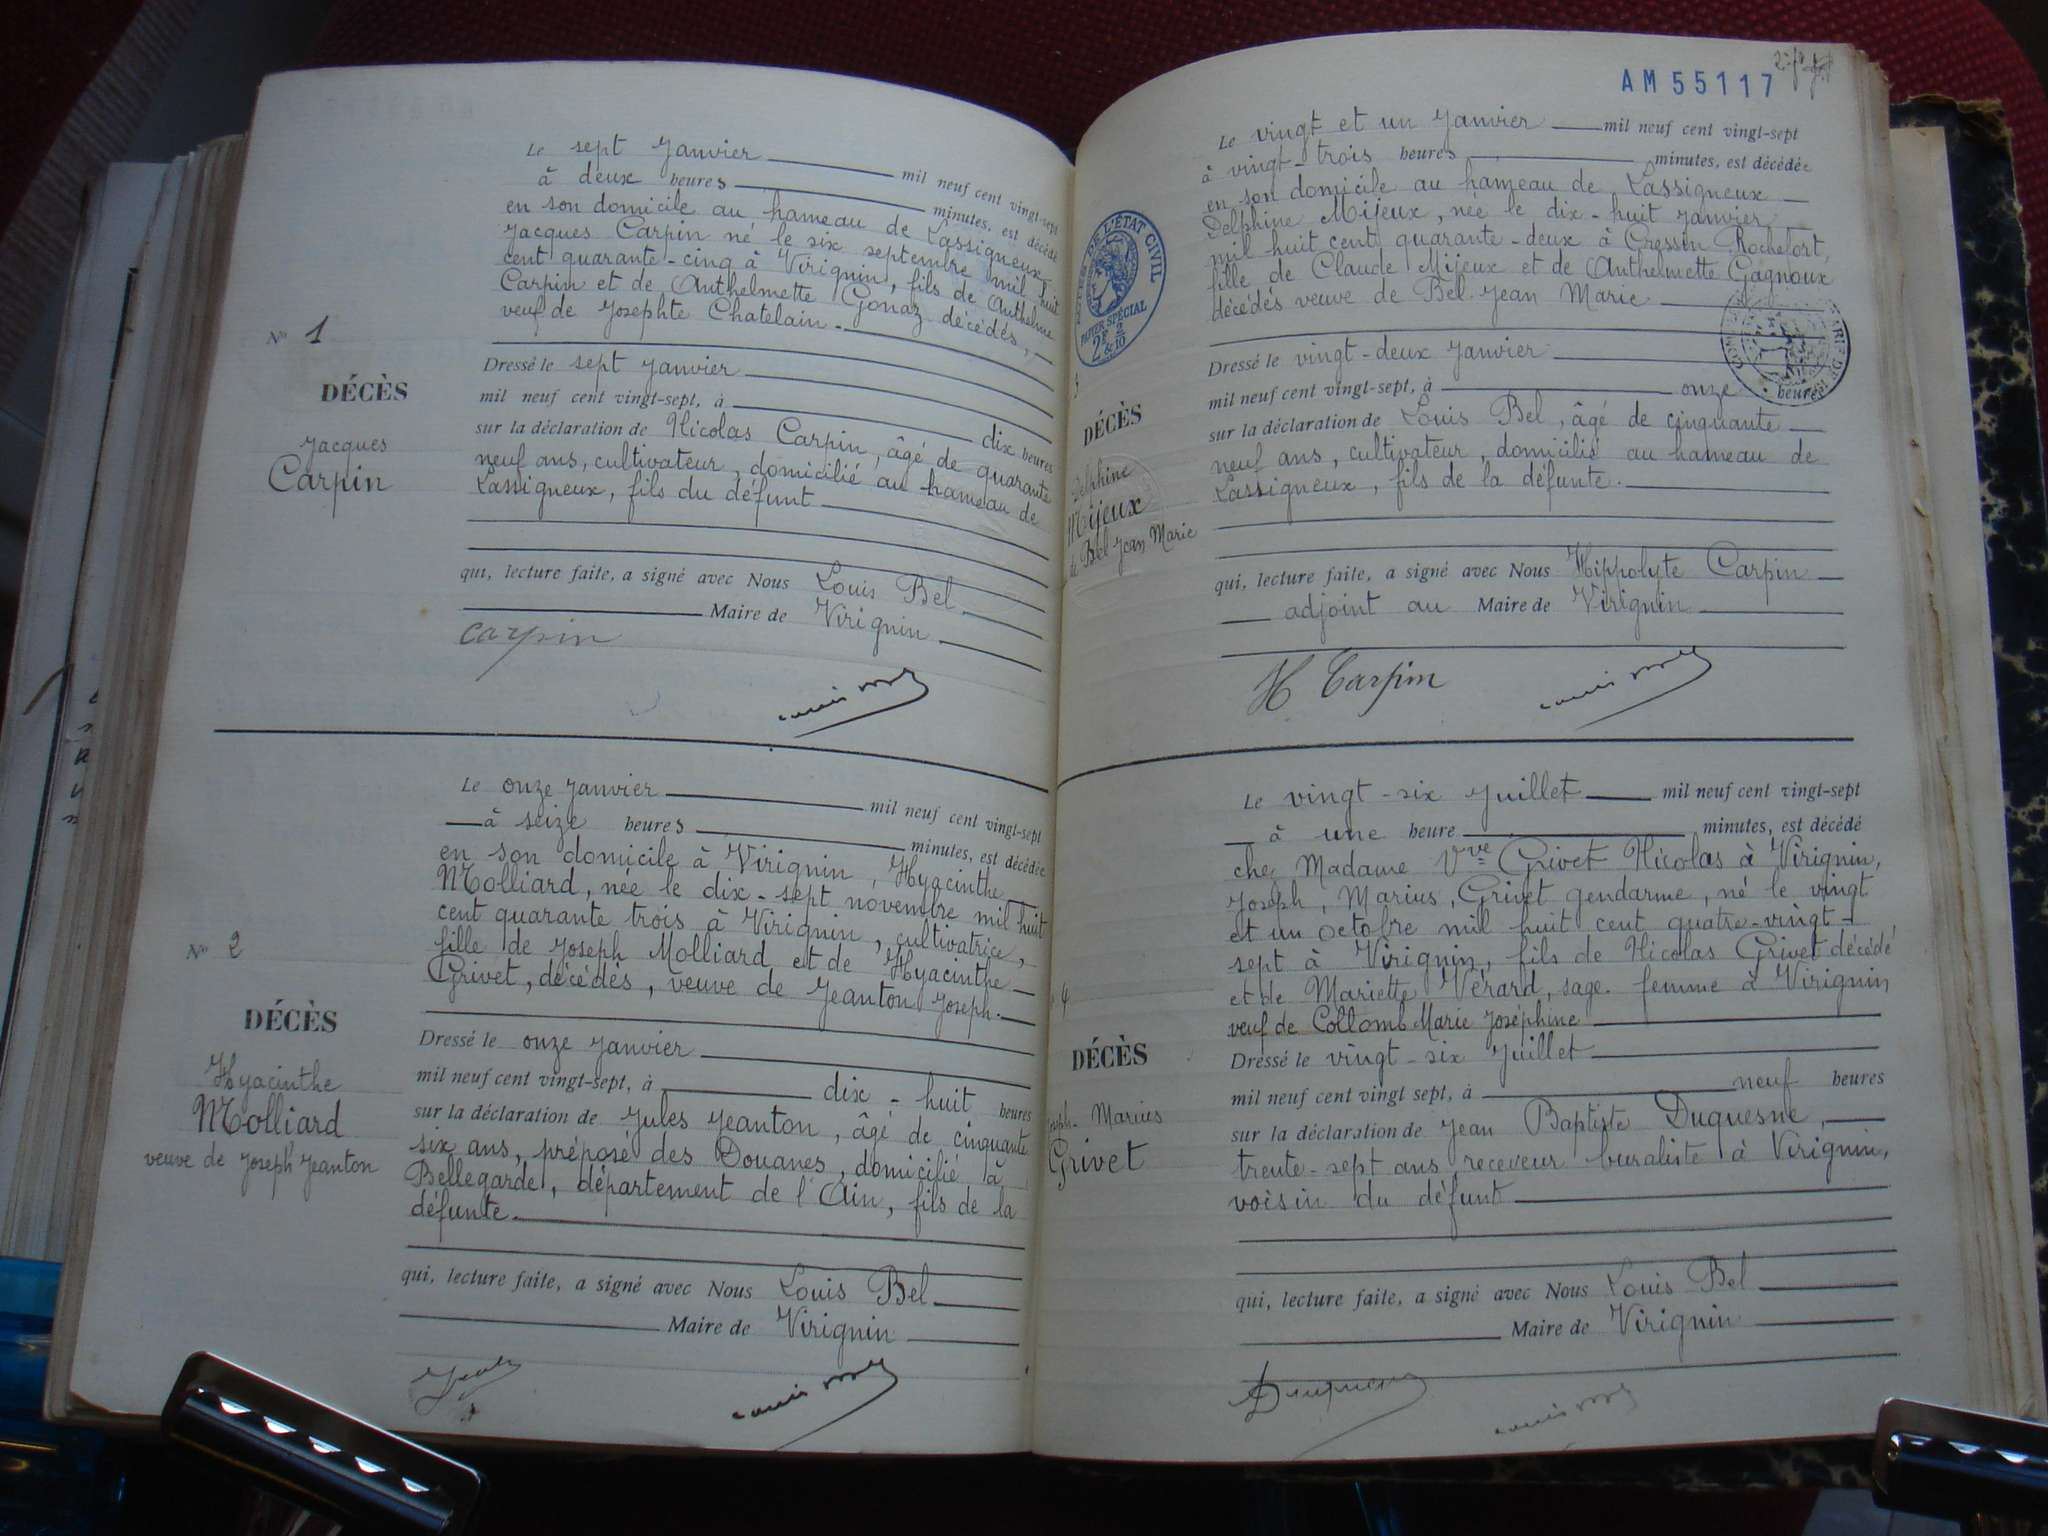 Le sept Janvier mil neuf cent vingt-sept
à deux heures minutes, est décédé
en son domicile au hameau de Lassigneux
Jacques Carpin né le six septembre mil huit
cent quarante-cinq à Virignin, fils de Anthelme
Carpin et de Anthelmette Gonaz décédés,
veuf de Josephte Chatelain.
N° 1
DÉCÈS
Jacques
Carpin
Dressé le sept Janvier
mil neuf cent vingt-sept, à dix heures
sur la déclaration de Nicolas Carpin, âgé de quarante
neuf ans, cultivateur, domicilié au hameau de
Lassigneux, fils du défunt
qui, lecture faite, a signé avec Nous Louis Bel
Maire de Virignin
Carpin
Le onze Janvier mil neuf cent vingt-sept
à seize heures minutes, est décédée
en son domicile à Virignin, Hyacinthe
Molliard, née le dix-sept novembre mil huit
cent quarante trois à Virignin, cultivatrice,
fille de Joseph Molliard et de Hyacinthe
Grivet, décédés, veuve de Jeanton Joseph.
N° 2
DÉCÈS
Hyacinthe
Molliard
veuve de Joseph Jeanton
Dressé le onze Janvier
mil neuf cent vingt-sept, à dix-huit heures
sur la déclaration de Jules Jeanton, âgé de cinquante
six ans, préposé des Douanes, domicilié à
Bellegarde, département de l'Ain, fils de la
défunte.
qui, lecture faite, a signé avec Nous Louis Bel
Maire de Virignin
AM 55117
Le vingt et un Janvier mil neuf cent vingt-sept
à vingt-trois heures minutes, est décédée
en son domicile au hameau de Lassigneux
Delphine Mijeux, née le dix-huit Janvier
mil huit cent quarante-deux à Cressin Rochefort,
fille de Claude Mijeux et de Anthelmette Gagnoux
décédés veuve de Bel Jean Marie
DE L'ÉTAT CIVIL
PAPIER SPÉCIAL
3
DÉCÈS
Delphine
Mijeux
de Bel Jean Marie
Dressé le vingt-deux Janvier
mil neuf cent vingt-sept, à onze heures
sur la déclaration de Louis Bel, âgé de cinquante
neuf ans, cultivateur, domicilié au hameau de
Lassigneux, fils de la défunte.
qui, lecture faite, a signé avec Nous Hippolyte Carpin
adjoint au Maire de Virignin
H Carpin
Le vingt-six Juillet mil neuf cent vingt-sept
à une heure minutes, est décédé
chez Madame Vve Grivet Nicolas à Virignin,
Joseph, Marius, Grivet gendarme, né le vingt
et un octobre mil huit cent quatre-vingt-
sept à Virignin, fils de Nicolas Grivet décédé
et de Mariette Vérard, sage-femme à Virignin
veuf de Collomb Marie Joséphine
4
DÉCÈS
Marius
Grivet
Dressé le vingt-six Juillet
mil neuf cent vingt sept, à neuf heures
sur la déclaration de Jean Baptiste Duquesne,
trente-sept ans, receveur buraliste à Virignin,
voisin du défunt
qui, lecture faite, a signé avec Nous Louis Bel
Maire de Virignin
Duquesne